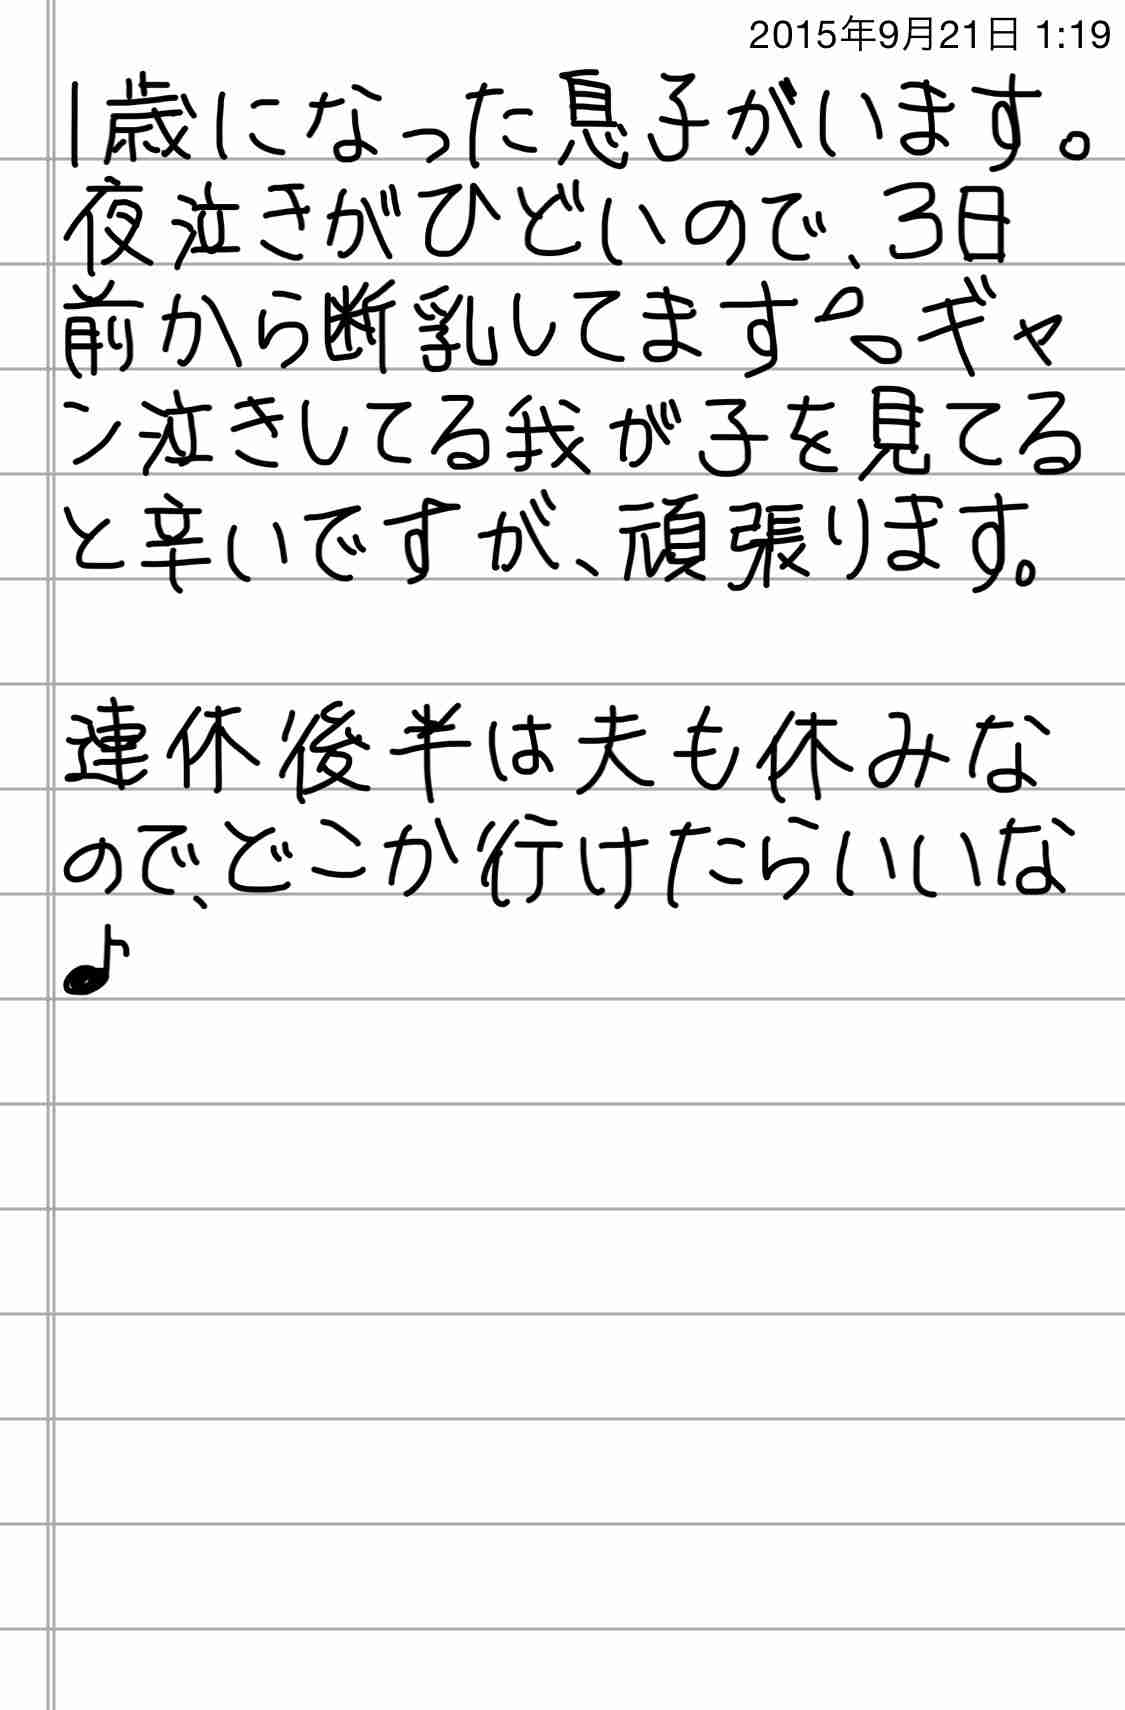 2015年9月21日 1:19
1歳になった息子がいます。
夜泣きがひどいので、3日
前から断乳してます💦ギャ
ン泣きしてる我が子を見てる
と辛いですが、頑張ります。
連休後半は夫も休みな
ので、どこか行けたらいいな
♪